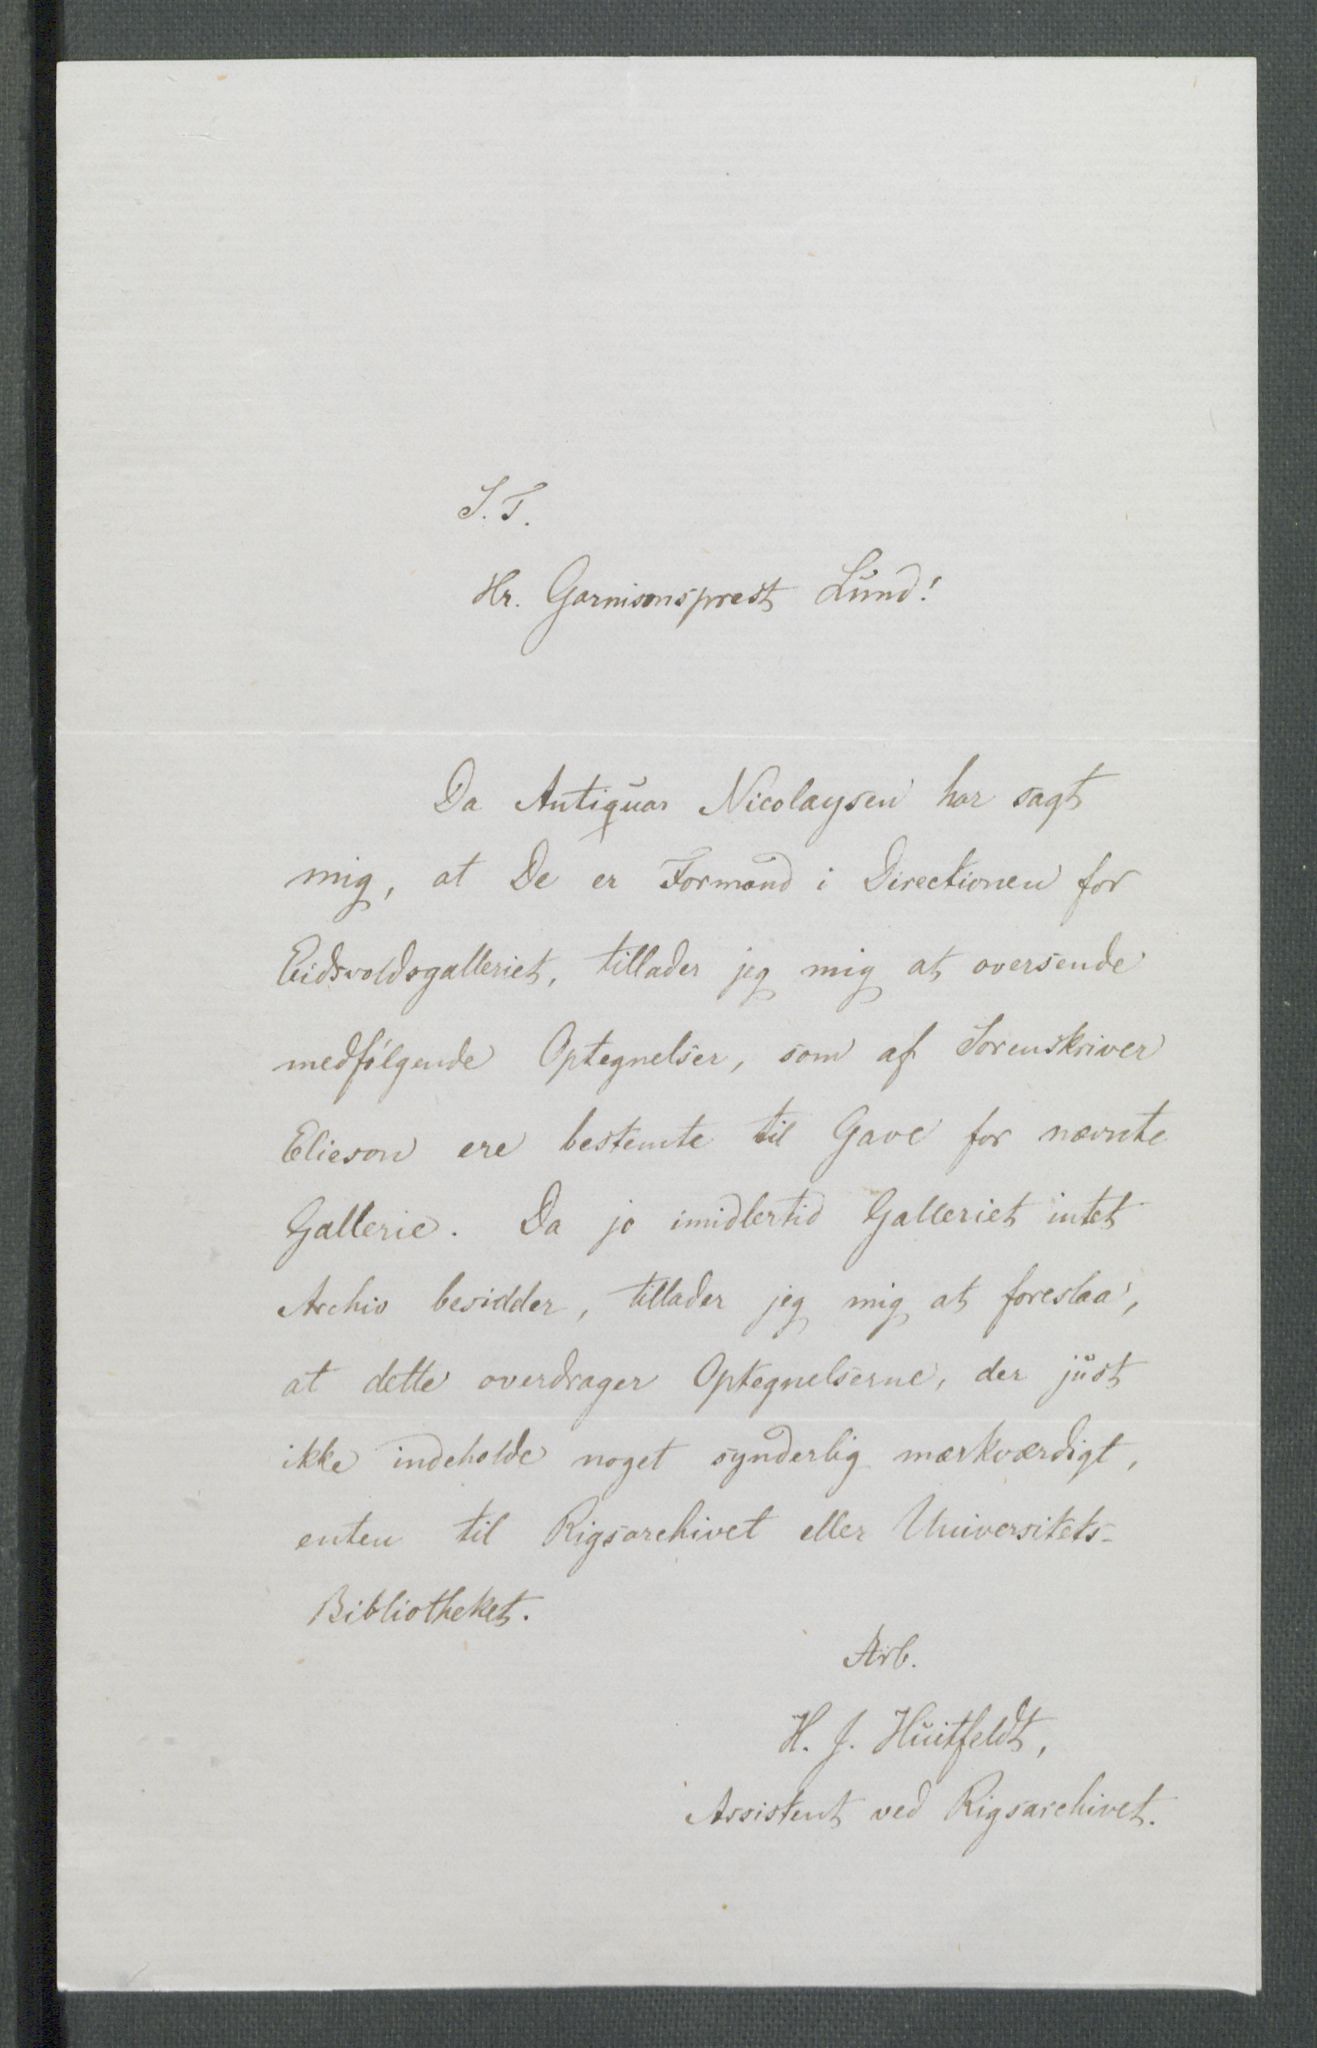 S. T.
Hr. Garnisonsprest Lund!
Da Antiquar Nicolaysen har sagt
mig, at De er Formand i Directionen for
Eidsvoldsgalleriet, tillader jeg mig at oversende
medfølgende Optegnelser, som af Sorenskriver
Elieson ere bestemte til Gave for nævnte
Gallerie. Da jo imidlertid Galleriet intet
Archiv besidder, tillader jeg mig at foreslaa,
at dette overdrager Optegnelserne, der just
ikke indeholde noget synderlig mærkværdigt,
enten til Rigsarchivet eller Universitets-
Bibliotheket.
Ærb.
H. J. Huitfeldt,
Assistent ved Rigsarchivet.